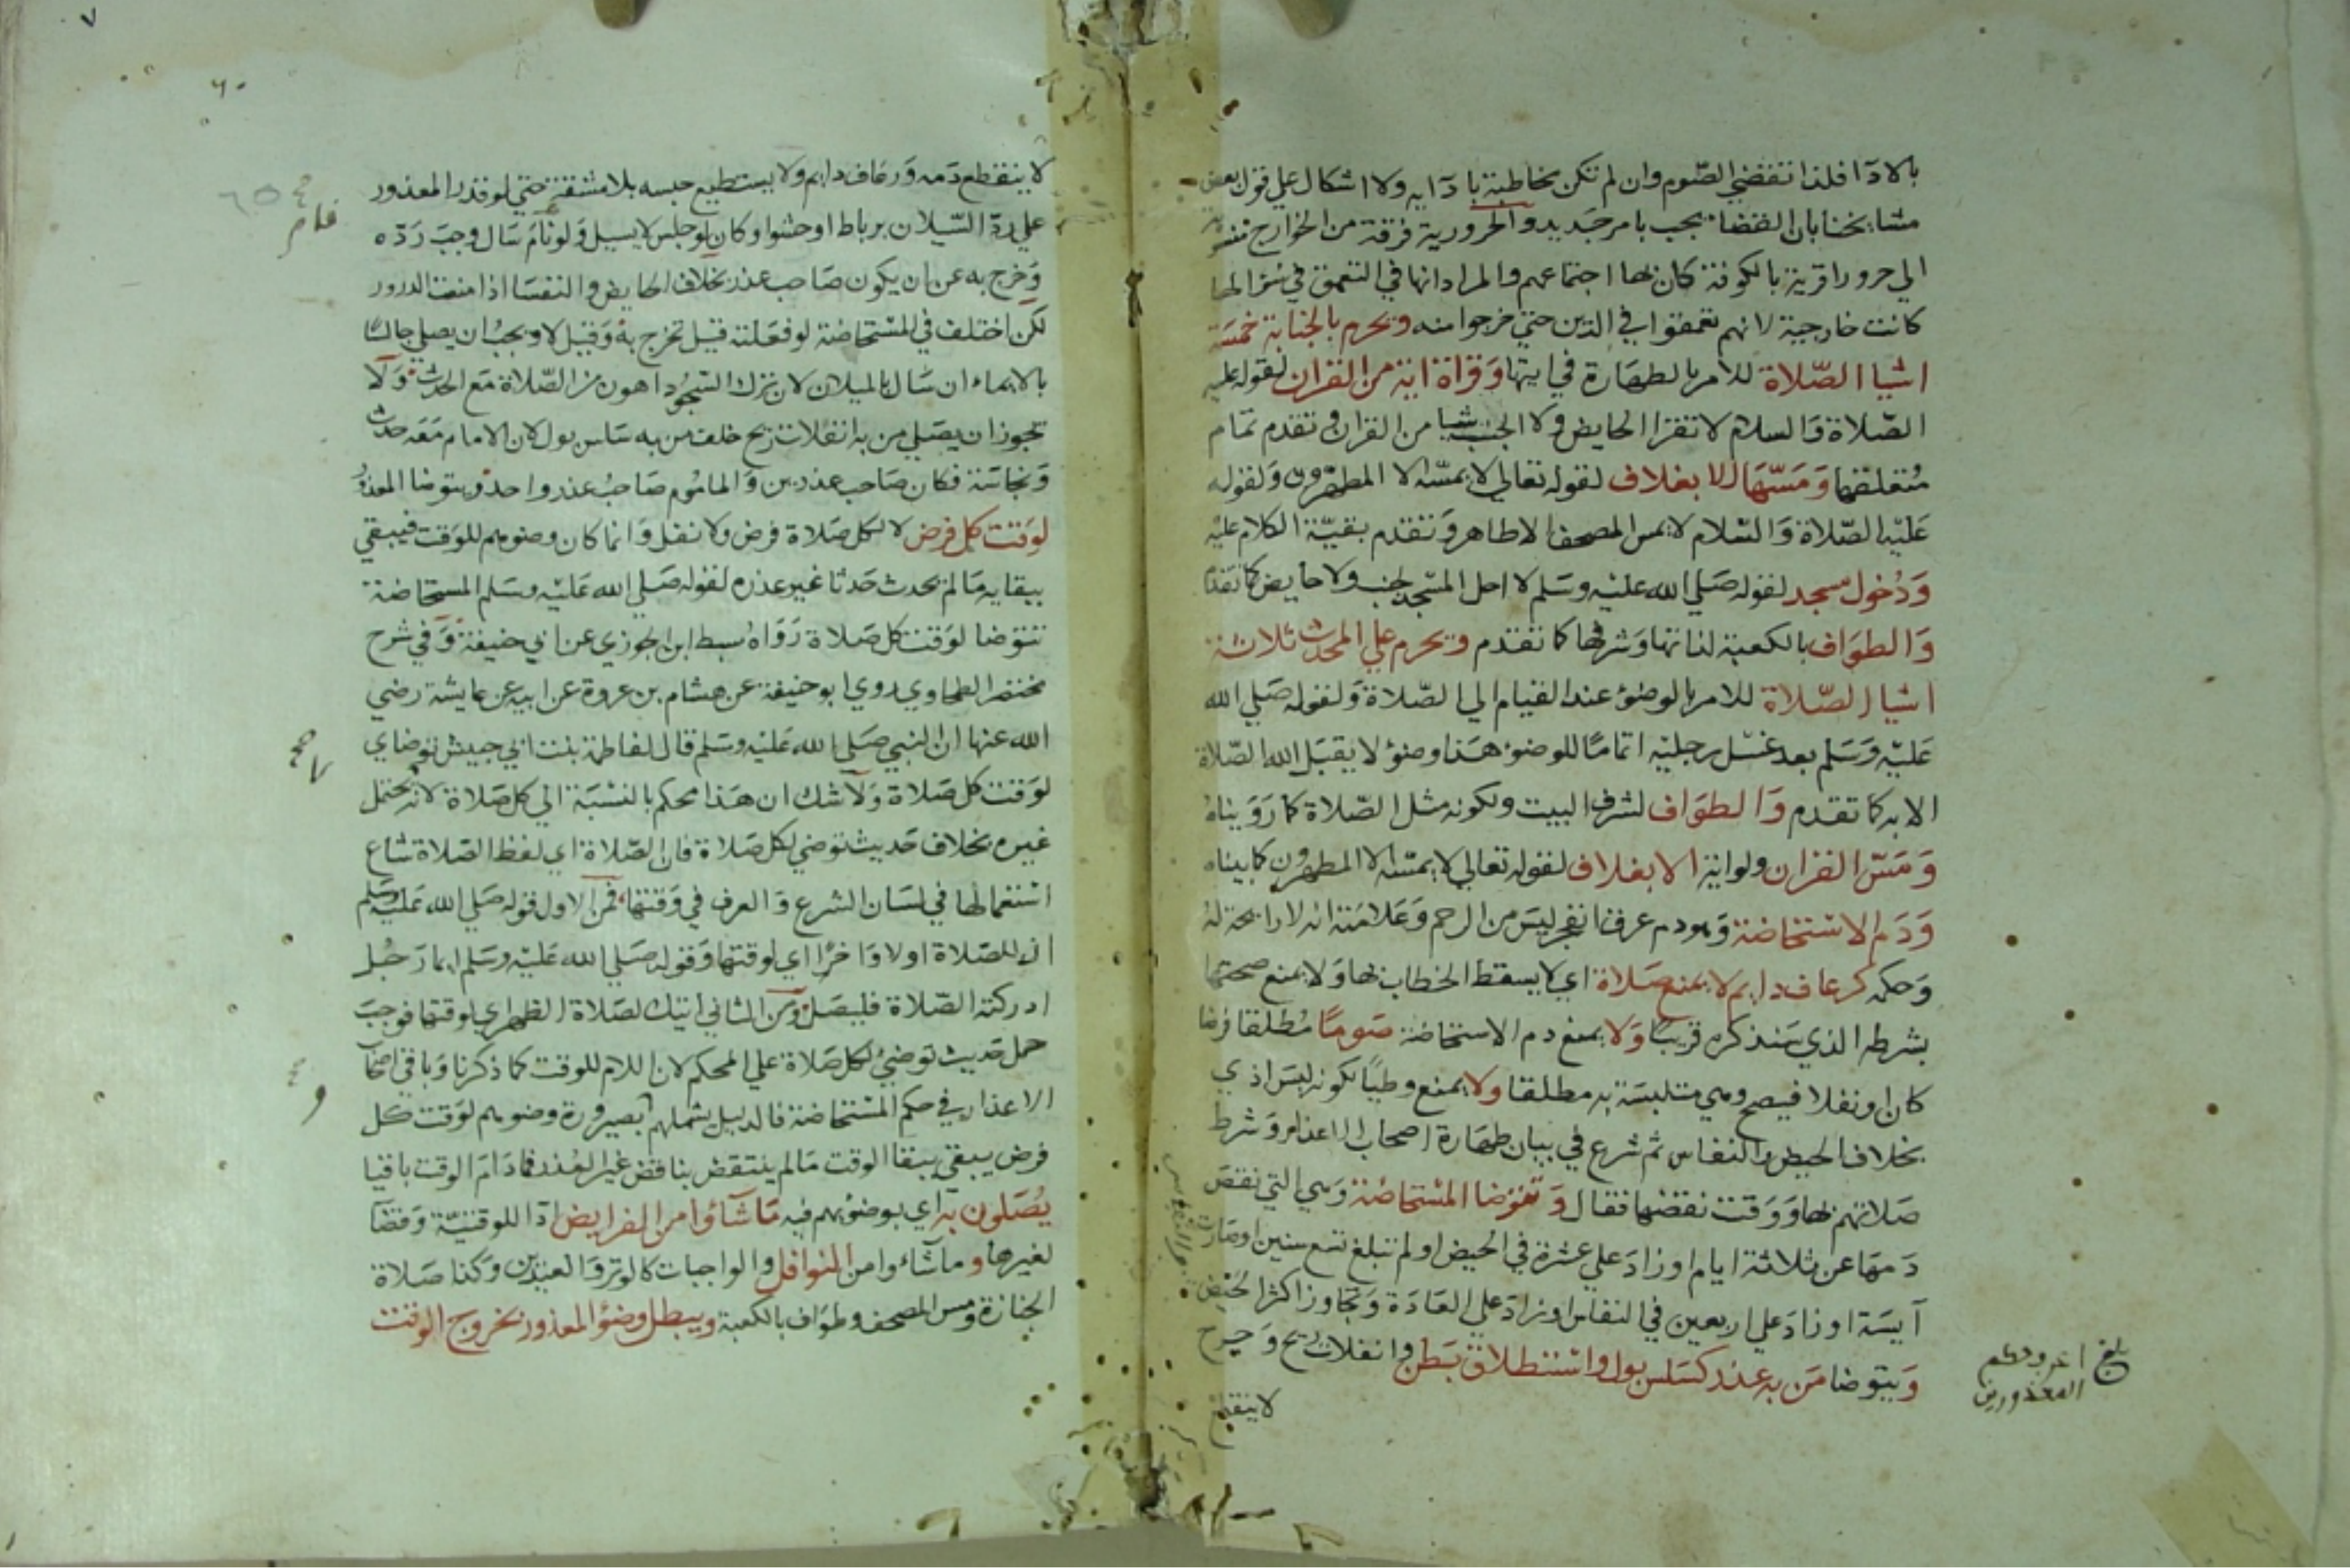 بالادآ فلذا تقضي الصّوم وان لم تكن مخاطبة بادآيه ولا اشكال علي قول بعض
مشايخنا بان القضا يجب بامر جديد والحرورية فرقة من الخوارج
الي حرورا قرية بالكوفة كان بها اجتماعهم والمراد انها في التعمق في
كانت خارجية لانهم تعمقوا في الدين حتي خرجوا منه ويحرم بالجنابة خمسَة
اشيا الصّلاة للامر بالطهَارة في ايتها وَقراة اية من القران لقوله عليه
الصّلاة وَالسلام لا تقرا الحايض وَلا الجنب شيا من القران وتقدم تمام
مُتعلقها وَمَسّهَا الا بغلاف لقوله تعالي لا يمسّه الا المطهّرون وَلقوله
عَليْه الصّلاة وَالسّلام لا يمس المصحف الا طاهر وَتقدم بقيّة الكلام عليْه
وَدُخول مسجد لقوله صَلي الله عليْه وسَلم لا احل المسْجد لجنب ولا حايض كما تقدّم
وَالطوَاف بالكعبة لذاتها وَشرفها كما تقدم ويحرم علي المحدث ثلاثة
اشيا الصّلاة للامر بالوضؤ عند القيام الي الصّلاة وَلقوله صَلي الله
عَليْه وَسَلم بعد غسْل رجليْه اتمامًا للوضوء هَذا وضوْ لا يقبَل الله الصّلاة
الا به كما تقدم وَالطوَاف لشرف البيت ولكونه مثل الصّلاة كما رَوَيناهُ
وَمَسّ القران ولو اية الا بغلاف لقوله تعالي لا يمسّه الا المطهرون كما بيناه
وَدَم الاسْتحَاضة وَهو دم عرق انفجر ليسَ من الرحم وَعَلامَته انه لا رايحة له
وَحكمه كرعاف دايم لا يمنع صَلاة اي لا يسقط الخطاب بها وَلا يمنع صحتها
بشرطه الذي سَنذكره قريبًا وَلا يمنع دم الاستحاضة صَومًا مُطلقا فرضا
كان او نفلا فيصح وهي متلبسَة به مطلقا ولا يمنع وطيًا لكونه ليسَ اذي
بخلاف الحيض والنفاس ثم شرع في بيان طهَارة اصحاب الاعذار وَشرط
صَلاتهم بها وَوَقت نقضها فقال وَتتوَضا المسْتحاضة وَهي التي نقصَ
دَمهَا عن ثلاثة ايام او زادَ علي عشرة في الحيض او لم تبلغ تسع سنين او صارت
آيسَة او زادَ علي اربعين في النفاس او زادَ علي العَادَة وَتجاوز اكثر الحَيْض
وَيتوضا مَن به عذر كسَلس بول واسْتطلاق بَطن وانفلات ريح وَجرح
لا ينقطع
بلغ اعرو حكم
المعذورين
لا ينقطع دَمه وَرعَاف دايم ولا يستطيع حبسه بلا مشقة حتي لو قدر المعذور
علي رد السّيلان برباط او حشو او كان لو جلس لا يسيل وَلو نامَ سَال وجبَ رَدّه
وَخرج به عن ان يكون صَاحب عذر بخلاف الحايض والنفسَا اذا منعت الدرور
لكن اختلف في المسْتحاضة لو فعَلته قيل تخرج به وَقيل لا ويجبُ ان يصلي جالسًا
بالايماء ان سَال بالميلان لان ترك السّجُود اهون من الصّلاة مَع الحدث وَلا
تجوز ان يصَلي من به انفلات ريح خلف من به سَلس بول لان الامام مَعَه حدث
وَنجاسَة فكان صَاحب عذرين وَالماموُم صَاحبُ عذر واحد ويتوضا المعذورُ
لوَقت كل فرض لا لكل صَلاة فرض ولا نفل وَانما كان وضوءهم للوَقت فيبقي
ببقايه مَا لم يحدث حَدثا غير عذره لقوله صَلي الله عَليْه وسَلم المستحاضة
تتوَضا لوَقت كل صَلاة رَوَاهُ سبط ابن الجوزي عن ابي حنيفة وَفي شرح
مختصر الطحاوي روي ابو حنيفة عن هشام بن عروة عن ابيه عن عايشة رضي
الله عنها ان النبي صَلي الله عَليْه وسَلم قال لفاطمة بنت ابي حبيش توضاي
لوَقت كل صَلاة وَلا شك ان هَذا محكم بالنسْبَة الي كل صَلاة لانه لا يحتمل
غيره بخلاف حَديث توضي لكل صَلاة فان الصّلاة اي لفظ الصّلاة شاع
اسْتعمالها في لسَان الشرع وَالعرف في وَقتها فمن الاول قوله صَلي الله عَليْه وسَلم
ان للصّلاة اولا وَاخرًا اي لوقتها وَقوله صَلي الله عَليْه وسَلم ايما رَجُل
ادركته الصّلاة فليصَل وَمن الثاني اتيك لصَلاة الظهر اي لوقتها فوجبَ
حمل حَديث توضيْ لكل صَلاة علي المحكم لان اللام للوقت كما ذكرنا وَباقي اصحَاب
الاعذار في حكم المسْتحاضة فالدليل يشملهم بصيرورة وضوءهم لوَقت كل
فرض يبقي ببقا الوقت مَا لم ينتقض بناقض غير العُذر فما دَامَ الوقت باقيا
يُصَلون به اي بوضوءهم فيه مَا شآؤا من الفرايض ادا للوقتيّة وَقضآ
لغيرها و ما شاءوا من النوافل والواجبات كالوتر وَالعيدين وكذا صَلاة
الجنازة ومس المصحف وطوَاف بالكعبة ويبطل وضوْ المعذور بخروج الوقت